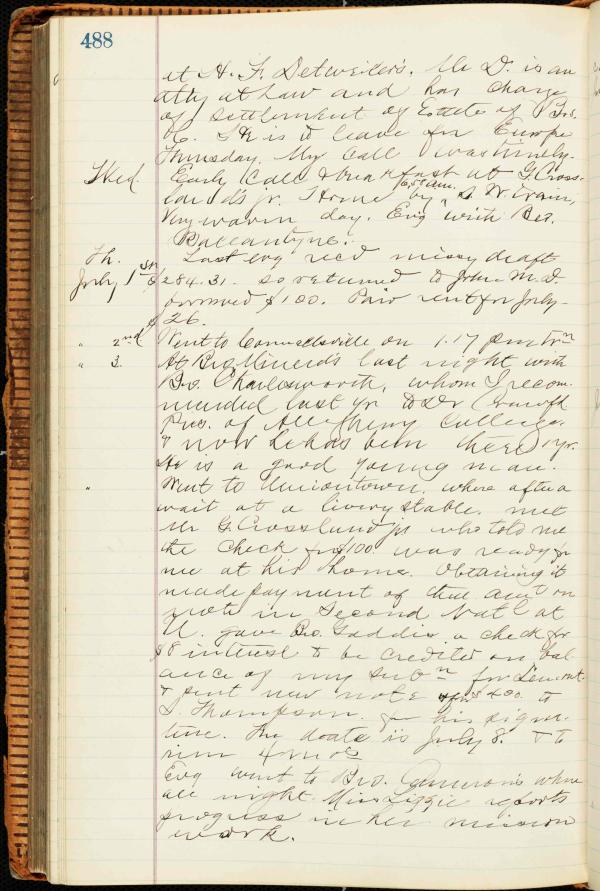 488
at H. F. Detweiler's. Mr D. is an
atty at law and has charge
of settlement of Estate of Bro.
C. He is to leave for Europe
Thursday. My call was timely.
Wed. Early call & breakfast at G. Cross-
land's jr. Home by 6.50 a.m. S. W. train,
Very warm day. Evg with Bro.
Ballantyne.
Th. Last evg rec'd missy draft
July 1st $284.31. so returned to John M. D.
borrowed $100. Paid rent for July
$26.
" 2nd Went to Connellsville on 1.17 pm trn
" 3. At Bro Minerd's last night with
Bro. Charlesworth, whom I recom-
mended last yr to Dr Crawford
Pres. of Allegheny College.
& now he has been there 1 yr.
He is a good young man.
" Went to Uniontown, where after a
wait at a livery stable, met
Mr G. Crossland jr who told me
the check for $100 was ready for
me at his home. Obtaining it
made payment of that amt on
note in Second Nat'l at
U. gave Bro. Gaddis a check for
$8 interest to be credited on bal-
ance of my subn for Lemont.
& sent new note for $400 to
S. Thompson for his signa-
ture. The date is July 8. & to
run 4 mos
Evg went to Bro. Cameron's where
all night. Miss Lizzie reports
progress in her mission
work.